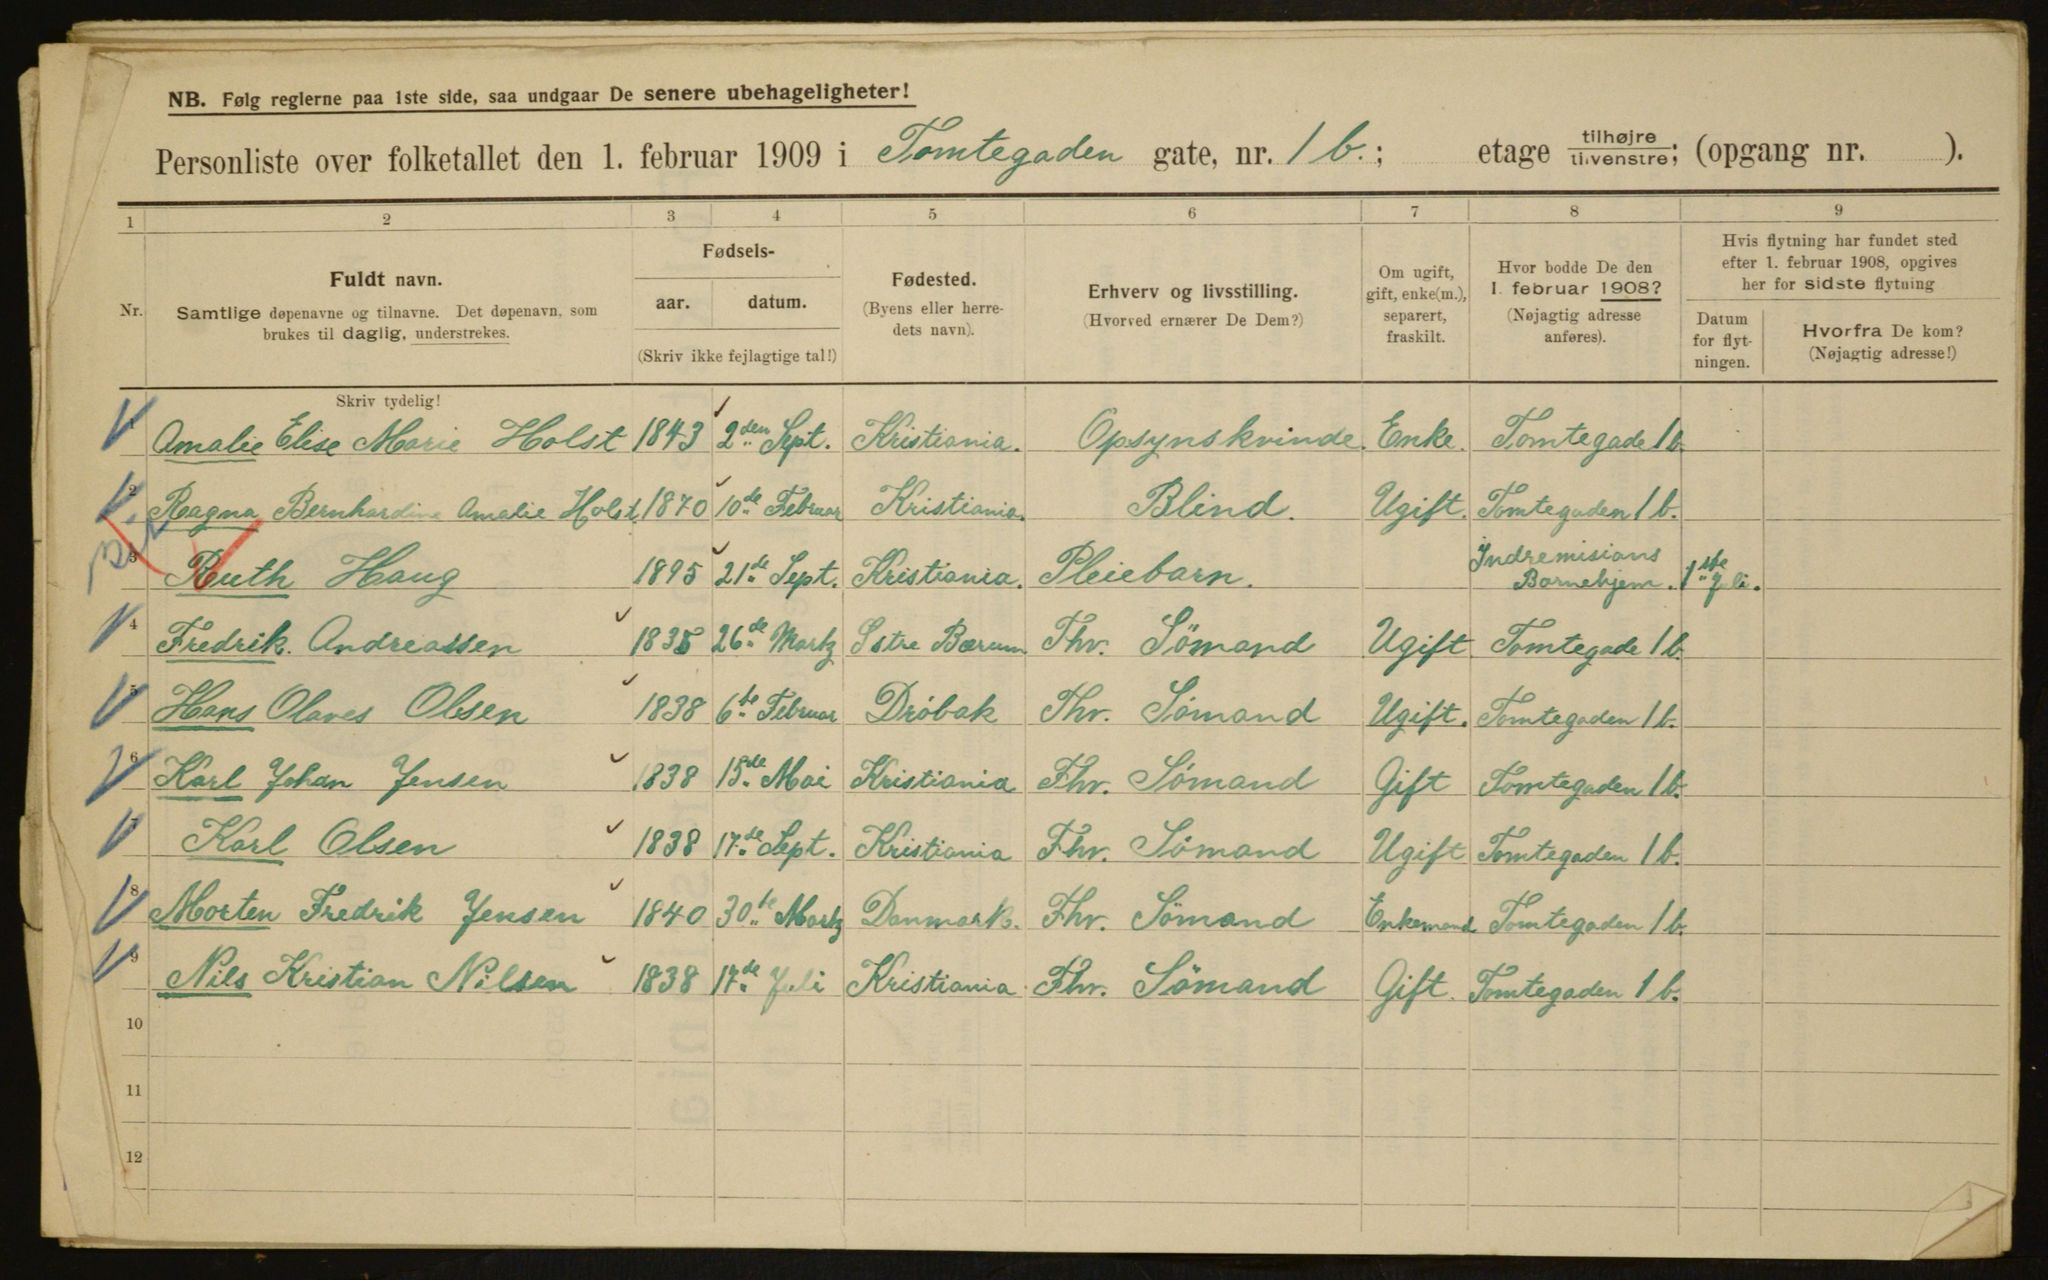 NB. Følg reglerne paa 1ste side, saa undgaar De senere ubehageligheter!
Personliste over folketallet den 1. februar 1909 i Tomtegaden gate, nr. 1 b.; etage tilhøjre tilvenstre; (opgang nr. ).
1 2 3 4 5 6 7 8 9
Nr.
Fuldt navn.
Samtlige døpenavne og tilnavne. Det døpenavn, som
brukes til daglig, understrekes.
Skriv tydelig!
Fødsels-
aar. datum.
(Skriv ikke fejlagtige tal!)
Fødested.
(Byens eller herre-
dets navn).
Erhverv og livsstilling.
(Hvorved ernærer De Dem?)
Om ugift,
gift, enke(m.),
separert,
fraskilt.
Hvor bodde De den
1. februar 1908?
(Nøjagtig adresse
anføres).
Hvis flytning har fundet sted
efter 1. februar 1908, opgives
her for sidste flytning
Datum
for flyt-
ningen.
Hvorfra De kom?
(Nøjagtig adresse!)
Amalie Elise Marie Holst 1843 2den Sept. Kristiania. Opsynskvinde. Enke. Tomtegade 1 b.
2 Ragna Bernhardine Amalie Holst. 1870 10de Februar Kristiania. Blind. Ugift. Tomtegaden 1 b.
3 Ruth Haug 1895 21de Sept. Kristiania. Pleiebarn. Indremisions Barnehjem. 1ste Juli.
4 Fredrik. Andreassen 1835 26de Martz Østre Bærum Fhv. Sömand Ugift Tomtegade 1 b.
5 Hans Olaves Olesen 1838 6te Februar Dröbak Fhv. Sömand Ugift. Tomtegaden 1 b.
6 Karl Johan Jensen 1838 15de Mai Kristiania Fhv. Sömand Gift Tomtegaden 1 b.
7 Karl Olsen 1838 17de Sept. Kristiania Fhv. Sömand Ugift Tomtegaden 1 b.
8 Morten Fredrik Jensen 1840 30te Martz Danmark. Fhv. Sömand Enkemand Tomtegaden 1 b.
9 Nils Kristian Nilsen 1838 17de Juli Kristiania. Fhv. Sömand Gift. Tomtegaden 1 b.
10
11
12